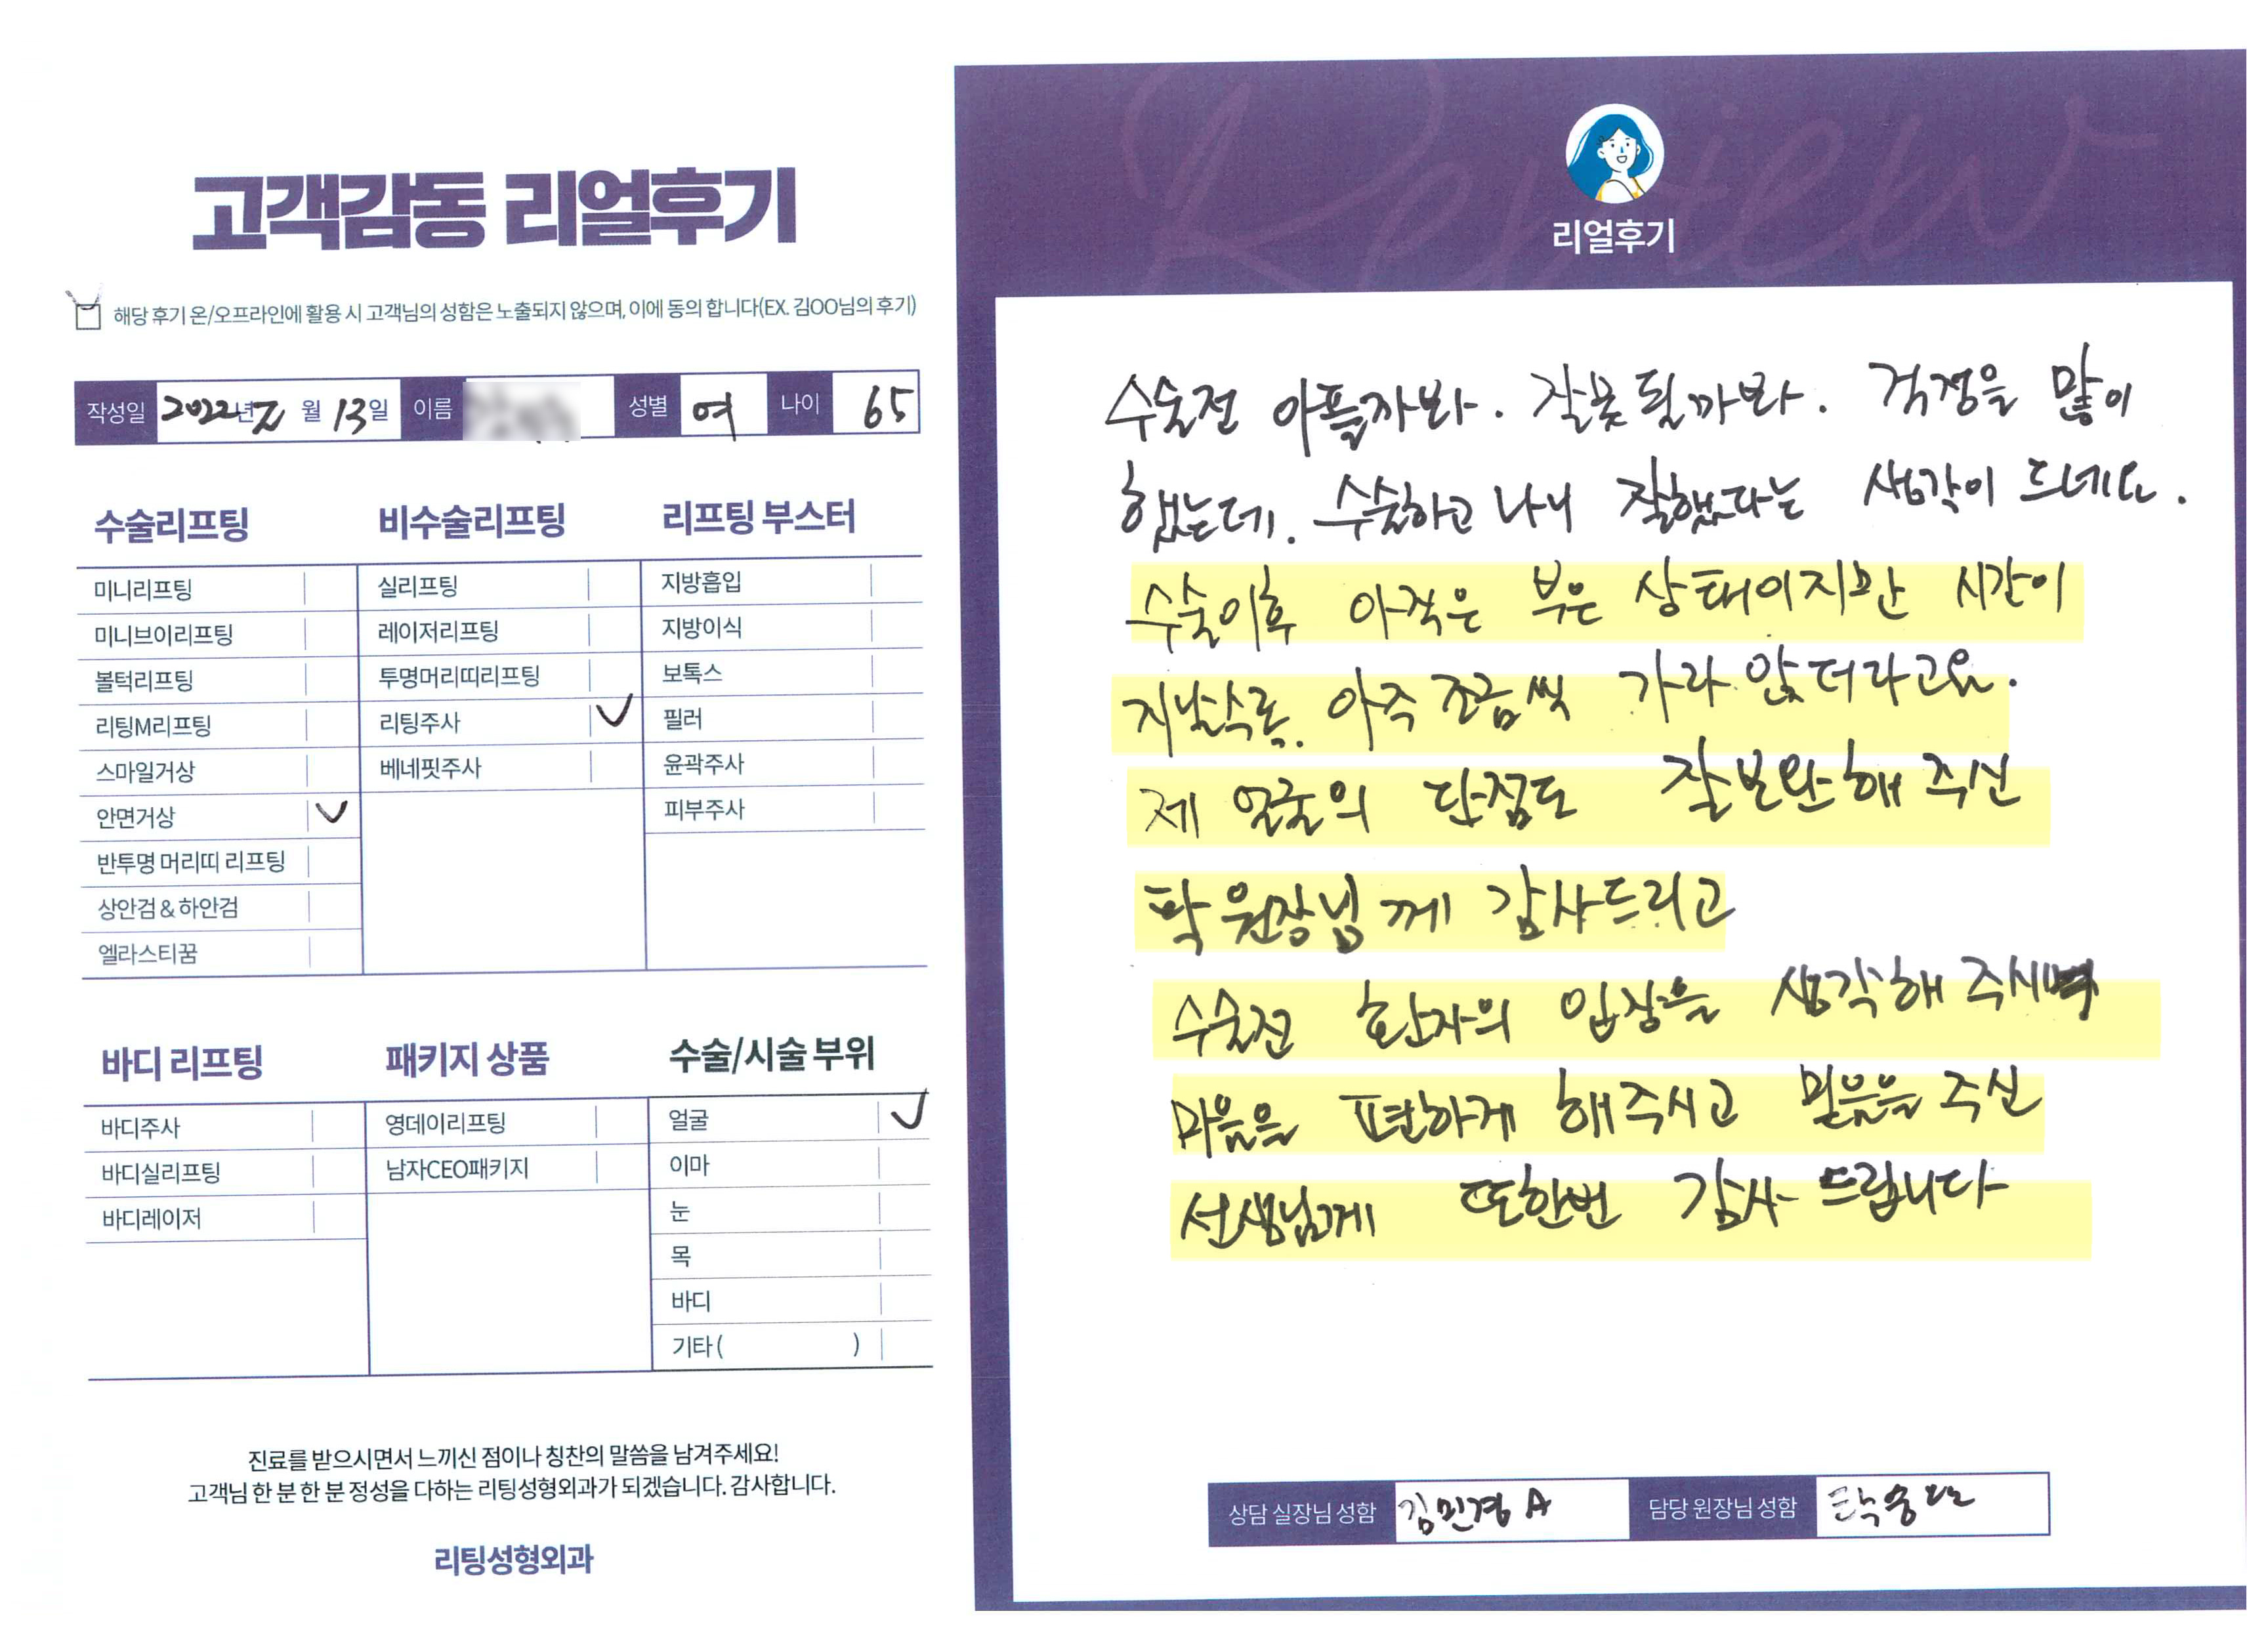 고객감동 리얼후기
해당 후기 온/오프라인에 활용 시 고객님의 성함은 노출되지 않으며, 이에 동의 합니다(EX. 김OO님의 후기)
작성일 2022년 월 13일 이름 성별 여 나이 65
수술리프팅
미니리프팅
미니브이리프팅
볼턱리프팅
리팅M리프팅
스마일거상
안면거상
반투명 머리띠 리프팅
상안검&하안검
엘라스티꿈
비수술리프팅
실리프팅
레이저리프팅
투명머리띠리프팅
리팅주사
베네핏주사
리프팅 부스터
지방흡입
지방이식
보톡스
필러
윤곽주사
피부주사
바디 리프팅
바디주사
바디실리프팅
바디레이저
패키지 상품
영데이리프팅
남자CEO패키지
수술/시술 부위
얼굴
이마
눈
목
바디
기타( )
진료를 받으시면서 느끼신 점이나 칭찬의 말씀을 남겨주세요!
고객님 한 분 한 분 정성을 다하는 리팅성형외과가 되겠습니다. 감사합니다.
리팅성형외과
Review
리얼후기
수술전 아플까봐. 잘못될까봐. 걱정을 많이
했는데. 수술하고 나니 잘했다는 생각이 드네요.
수술이후 아직은 부은 상태이지만 시간이
지날수록. 아주 조금씩 가라 앉더라고요.
제 얼굴의 단점도 잘보완해 주신
탁 원장님께 감사드리고
수술전 환자의 입장을 생각해 주시며
마음을 편하게 해주시고 믿음을 주신
선생님께 또한번 감사 드립니다
상담 실장님 성함 김민경 A 담당 원장님 성함